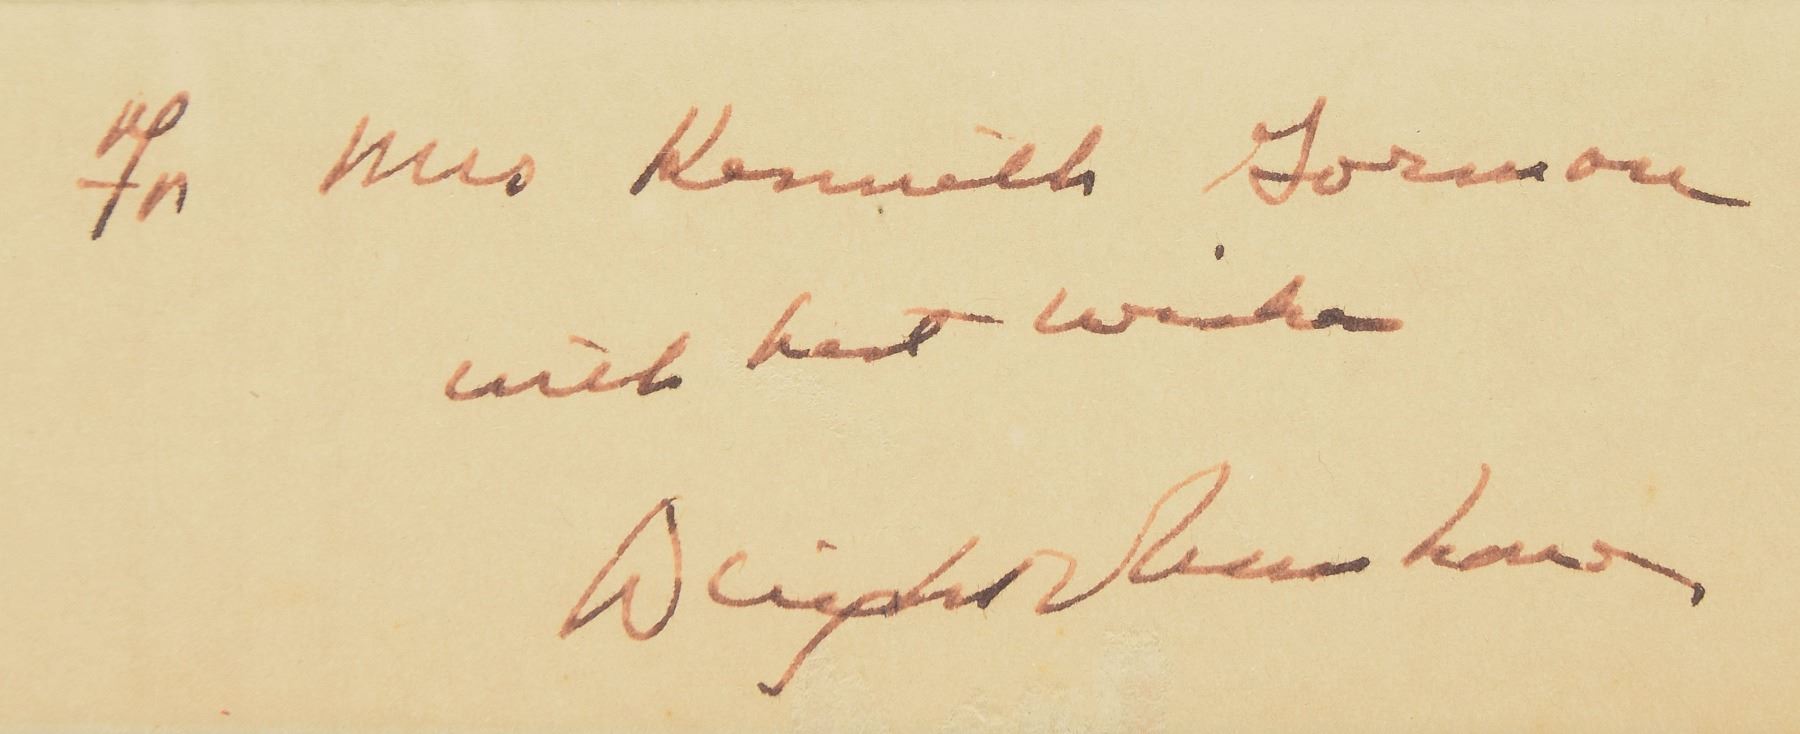 For Mrs Kenneth Gorman
with best wishes
Dwight Renshaw